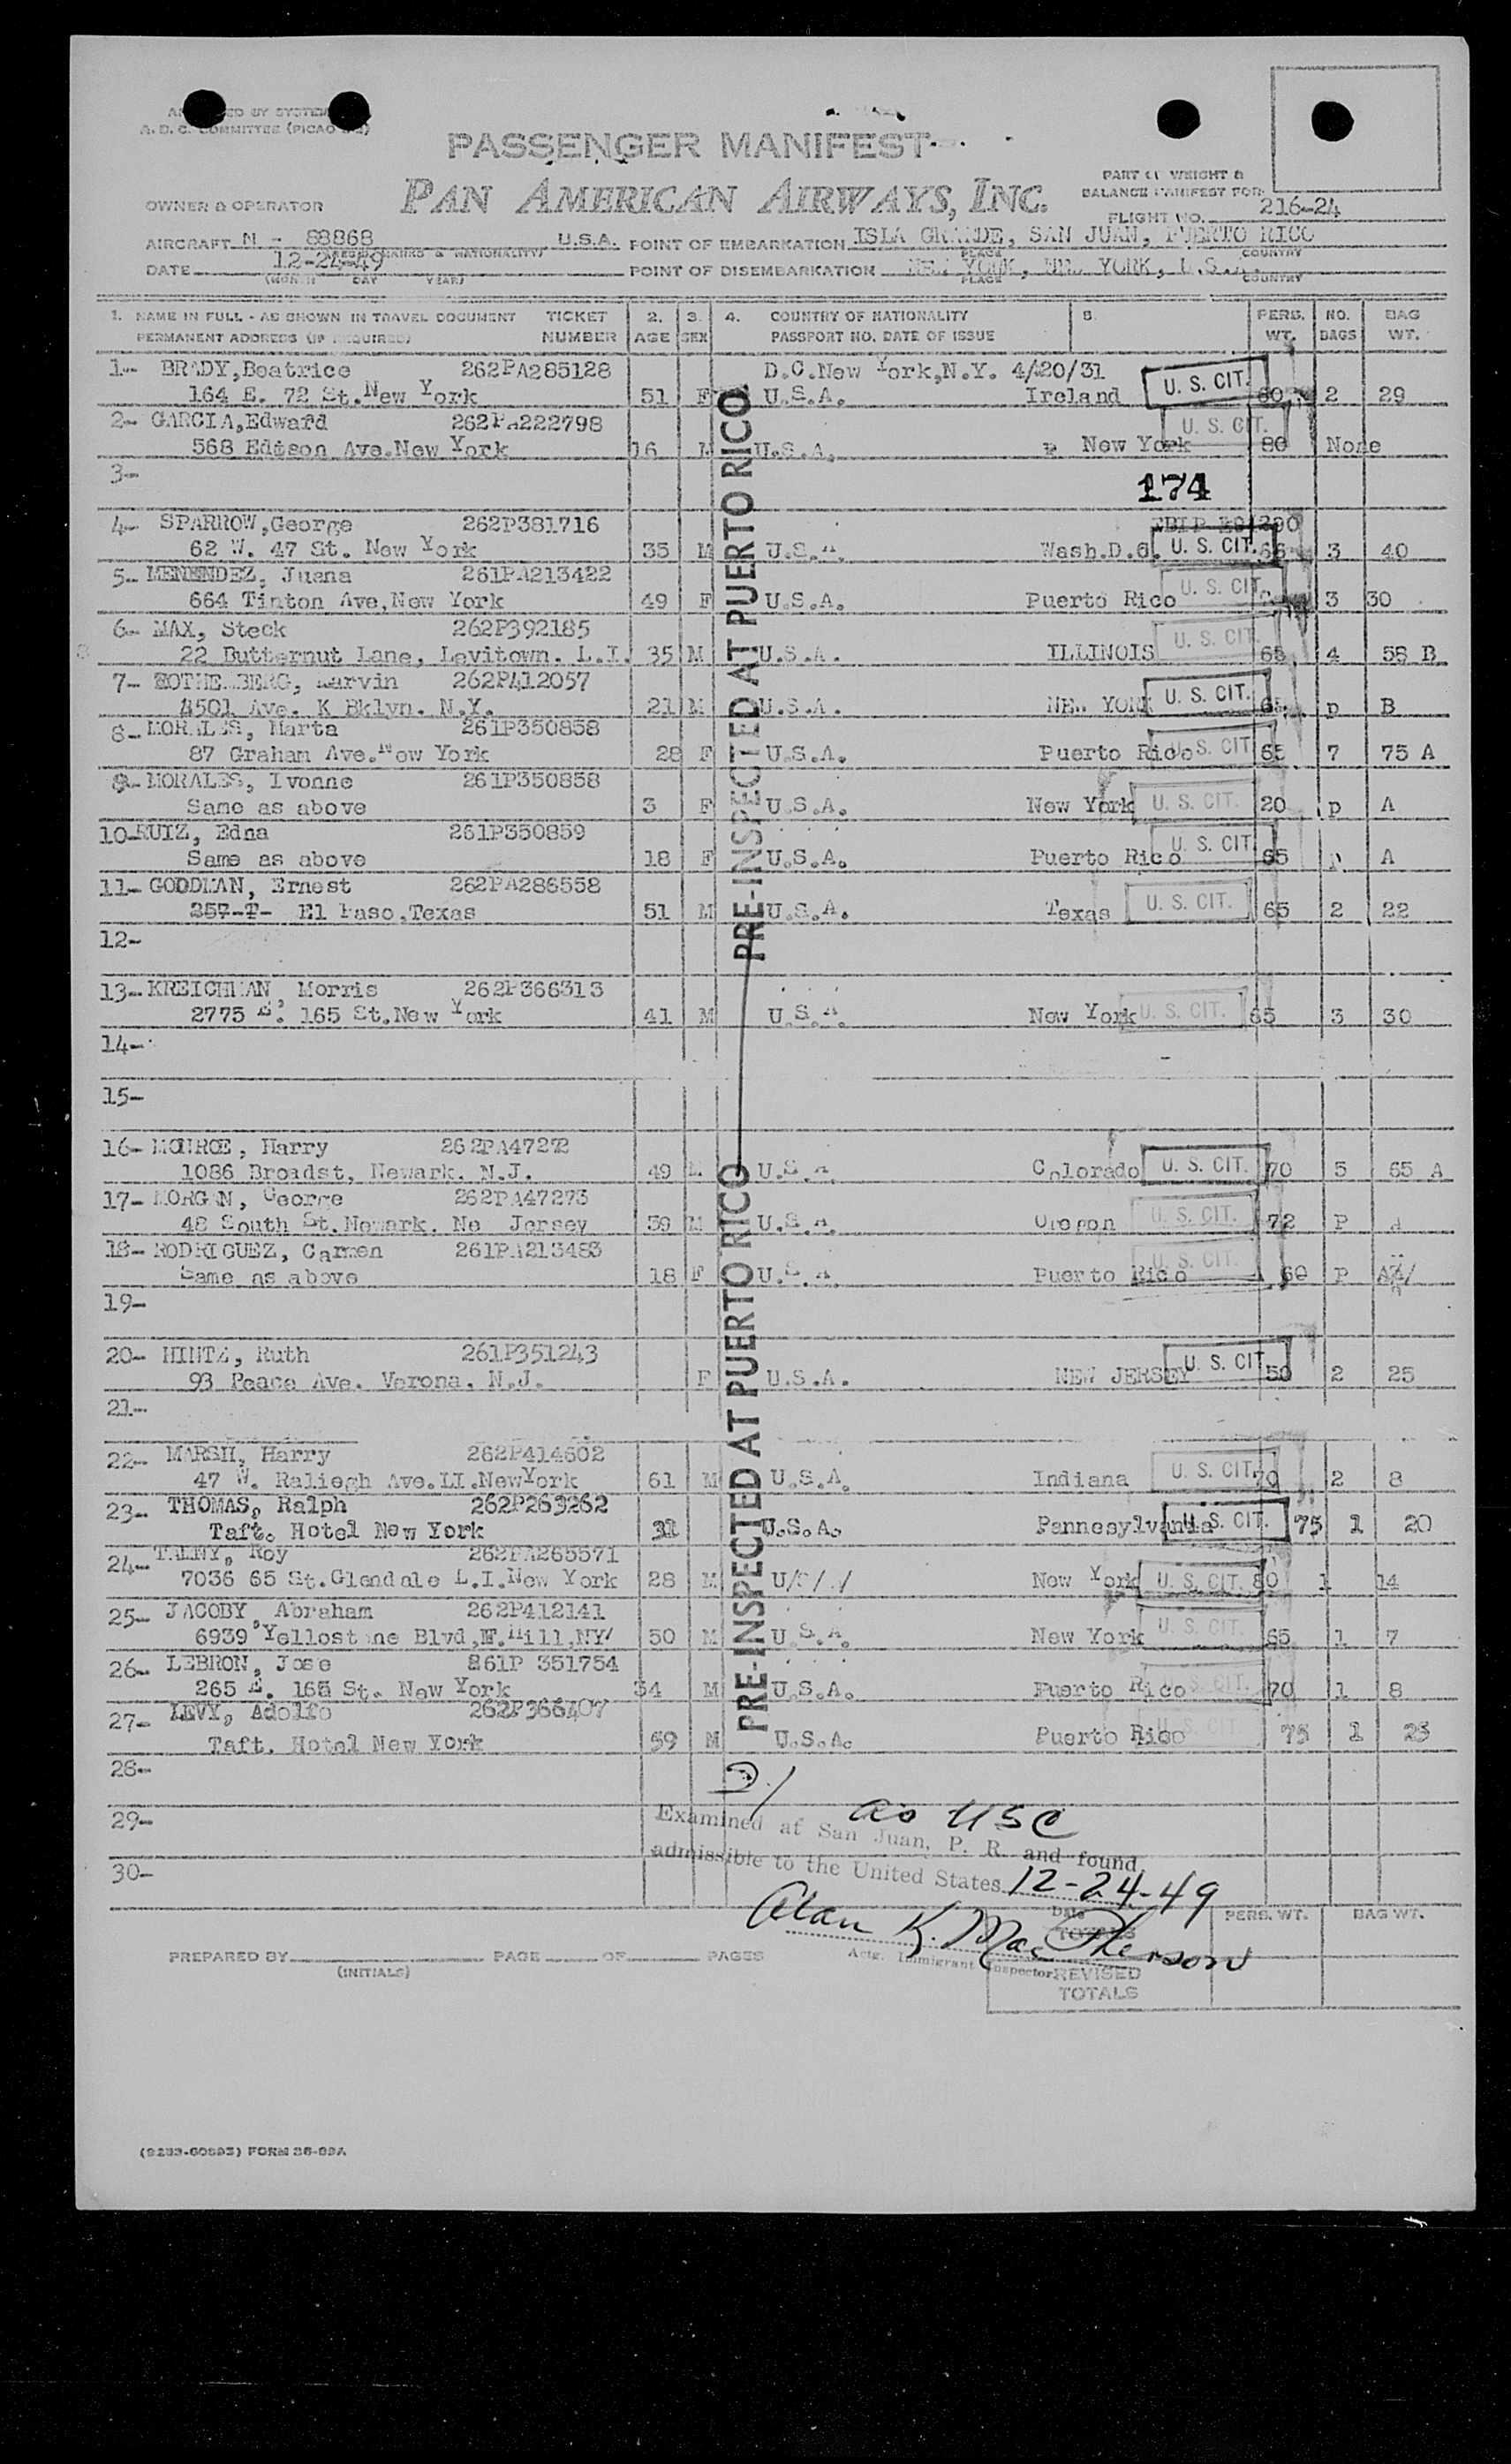 A. D. C. COMMITTEE (PICAO
PASSENGER MANIFEST
PAN AMERICAN AIRWAYS, INC.
PART OF WEIGHT &
BALANCE MANIFEST FOR
FLIGHT NO. 216-24
OWNER & OPERATOR
AIRCRAFT N - 88868 U.S.A. POINT OF EMBARKATION ISLA GRANDE, SAN JUAN, PUERTO RICO
(REGIS. MARKS & NATIONALITY) PLACE COUNTRY
DATE 12-24-49 POINT OF DISEMBARKATION NEW YORK, NEW YORK, U.S.A.
(MONTH DAY YEAR) PLACE COUNTRY
1. NAME IN FULL - AS SHOWN IN TRAVEL DOCUMENT TICKET 2. 3. 4. COUNTRY OF NATIONALITY 5. PERS. NO. BAG
PERMANENT ADDRESS (IF REQUIRED) NUMBER AGE SEX PASSPORT NO. DATE OF ISSUE WT. BAGS WT.
1-- BRADY,Beatrice 262PA285128 D.C.New York,N.Y. 4/20/31
164 E. 72 St.New York 51 F U.S.A. Ireland U. S. CIT. 60 2 29
2- GARCIA,Edward 262PA222798 U. S. CIT.
568 Edison Ave.New York 16 M U.S.A. New York 80 None
3-
174
4- SPARROW,George 262P381716
62 W. 47 St. New York 35 M U.S.A. Wash.D.C. U. S. CIT. 3 40
5- MENENDEZ, Juana 261PA213422
664 Tinton Ave,New York 49 F U.S.A. Puerto Rico U. S. CIT. 3 30
6- MAX, Steck 262P392185
22 Butternut Lane, Levitown. L.I. 35 M U.S.A. ILLINOIS U. S. CIT. 65 4 58 B
7- ROTHENBERG, Marvin 262P412057
4501 Ave. K Bklyn. N.Y. 21 M U.S.A. NEW YORK U. S. CIT. 65 p B
8- MORALES, Marta 261P350858
87 Graham Ave.New York 28 F U.S.A. Puerto Rico U. S. CIT 65 7 75 A
9- MORALES, Ivonne 261P350858
Same as above 3 F U.S.A. New York U. S. CIT. 20 p A
10-RUIZ, Edna 261P350859
Same as above 18 F U.S.A. Puerto Rico U. S. CIT 65 p A
11- GODDMAN, Ernest 262PA286558
257-T- El Paso,Texas 51 M U.S.A. Texas U. S. CIT. 65 2 22
12-
13- KREICHMAN, Morris 262P366313
2775 E. 165 St.New York 41 M U.S.A. New York U. S. CIT. 65 3 30
14-
15-
16- MONROE, Harry 262PA47272
1086 Broadst, Newark. N.J. 49 M U.S.A Colorado U. S. CIT. 70 5 65 A
17- MORGAN, George 262PA47273
48 South St.Newark. Ne Jersey 59 M U.S.A. Oregon U. S. CIT. 72 P A
18- RODRIGUEZ, Carmen 261PA213483
Same as above 18 F U.S.A. Puerto Rico U. S. CIT. 60 P
19-
20- HINTZ, Ruth 261P351243
93 Peace Ave. Verona. N.J. F U.S.A. NEW JERSEY U. S. CIT. 50 2 25
21--
22- MARSH, Harry 262P414602
47 W. Raliegh Ave.LI.NewYork 61 M U.S.A. Indiana U. S. CIT. 70 2 8
23- THOMAS, Ralph 262P263262
Taft. Hotel New York 31 U.S.A. Pannesylvania U. S. CIT. 75 1 20
24- TALNY, Roy 262PA265571
7036 65 St.Glendale L.I.New York 28 M New York U. S. CIT. 80 1 14
25- JACOBY, Abraham 262P412141
6939 Yellostone Blvd,F.Hill,NY/ 50 M U.S.A. New York U. S. CIT. 65 1 7
26- LEBRON, Jose 261P 351754
265 E. 165 St. New York 34 M U.S.A. Puerto Rico U. S. CIT. 70 1 8
27- LEVY, Adolfo 262P366407
Taft. Hotel New York 59 M U.S.A. Puerto Rico U. S. CIT. 75 1 25
28--
29-
30-
PRE-INSPECTED AT PUERTO RICO
PRE-INSPECTED AT PUERTO RICO
as USC
Examined at San Juan, P. R. and found
admissible to the United States 12-24-49
Date
Alan K. MacPherson
Actg. Immigrant Inspector
TOTALS PERS. WT. BAG WT.
PREPARED BY PAGE OF PAGES
(INITIALS)
REVISED
TOTALS